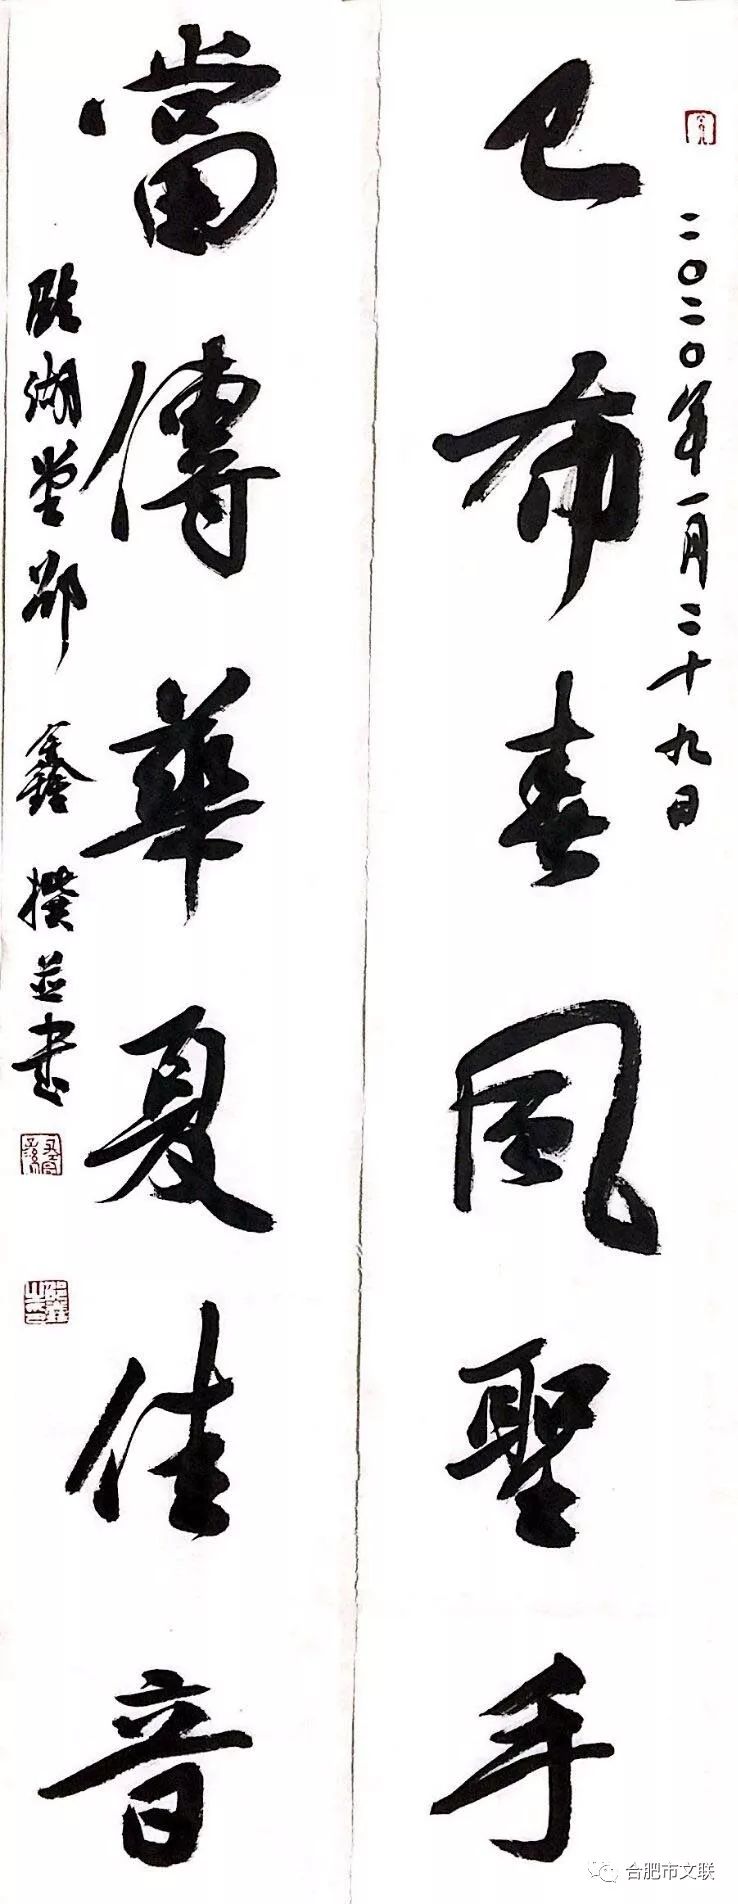 二〇二〇年一月二十九日
已布春風聖手
當傳華夏佳音
臨湖堂邵鑫撰並書
合肥市文联